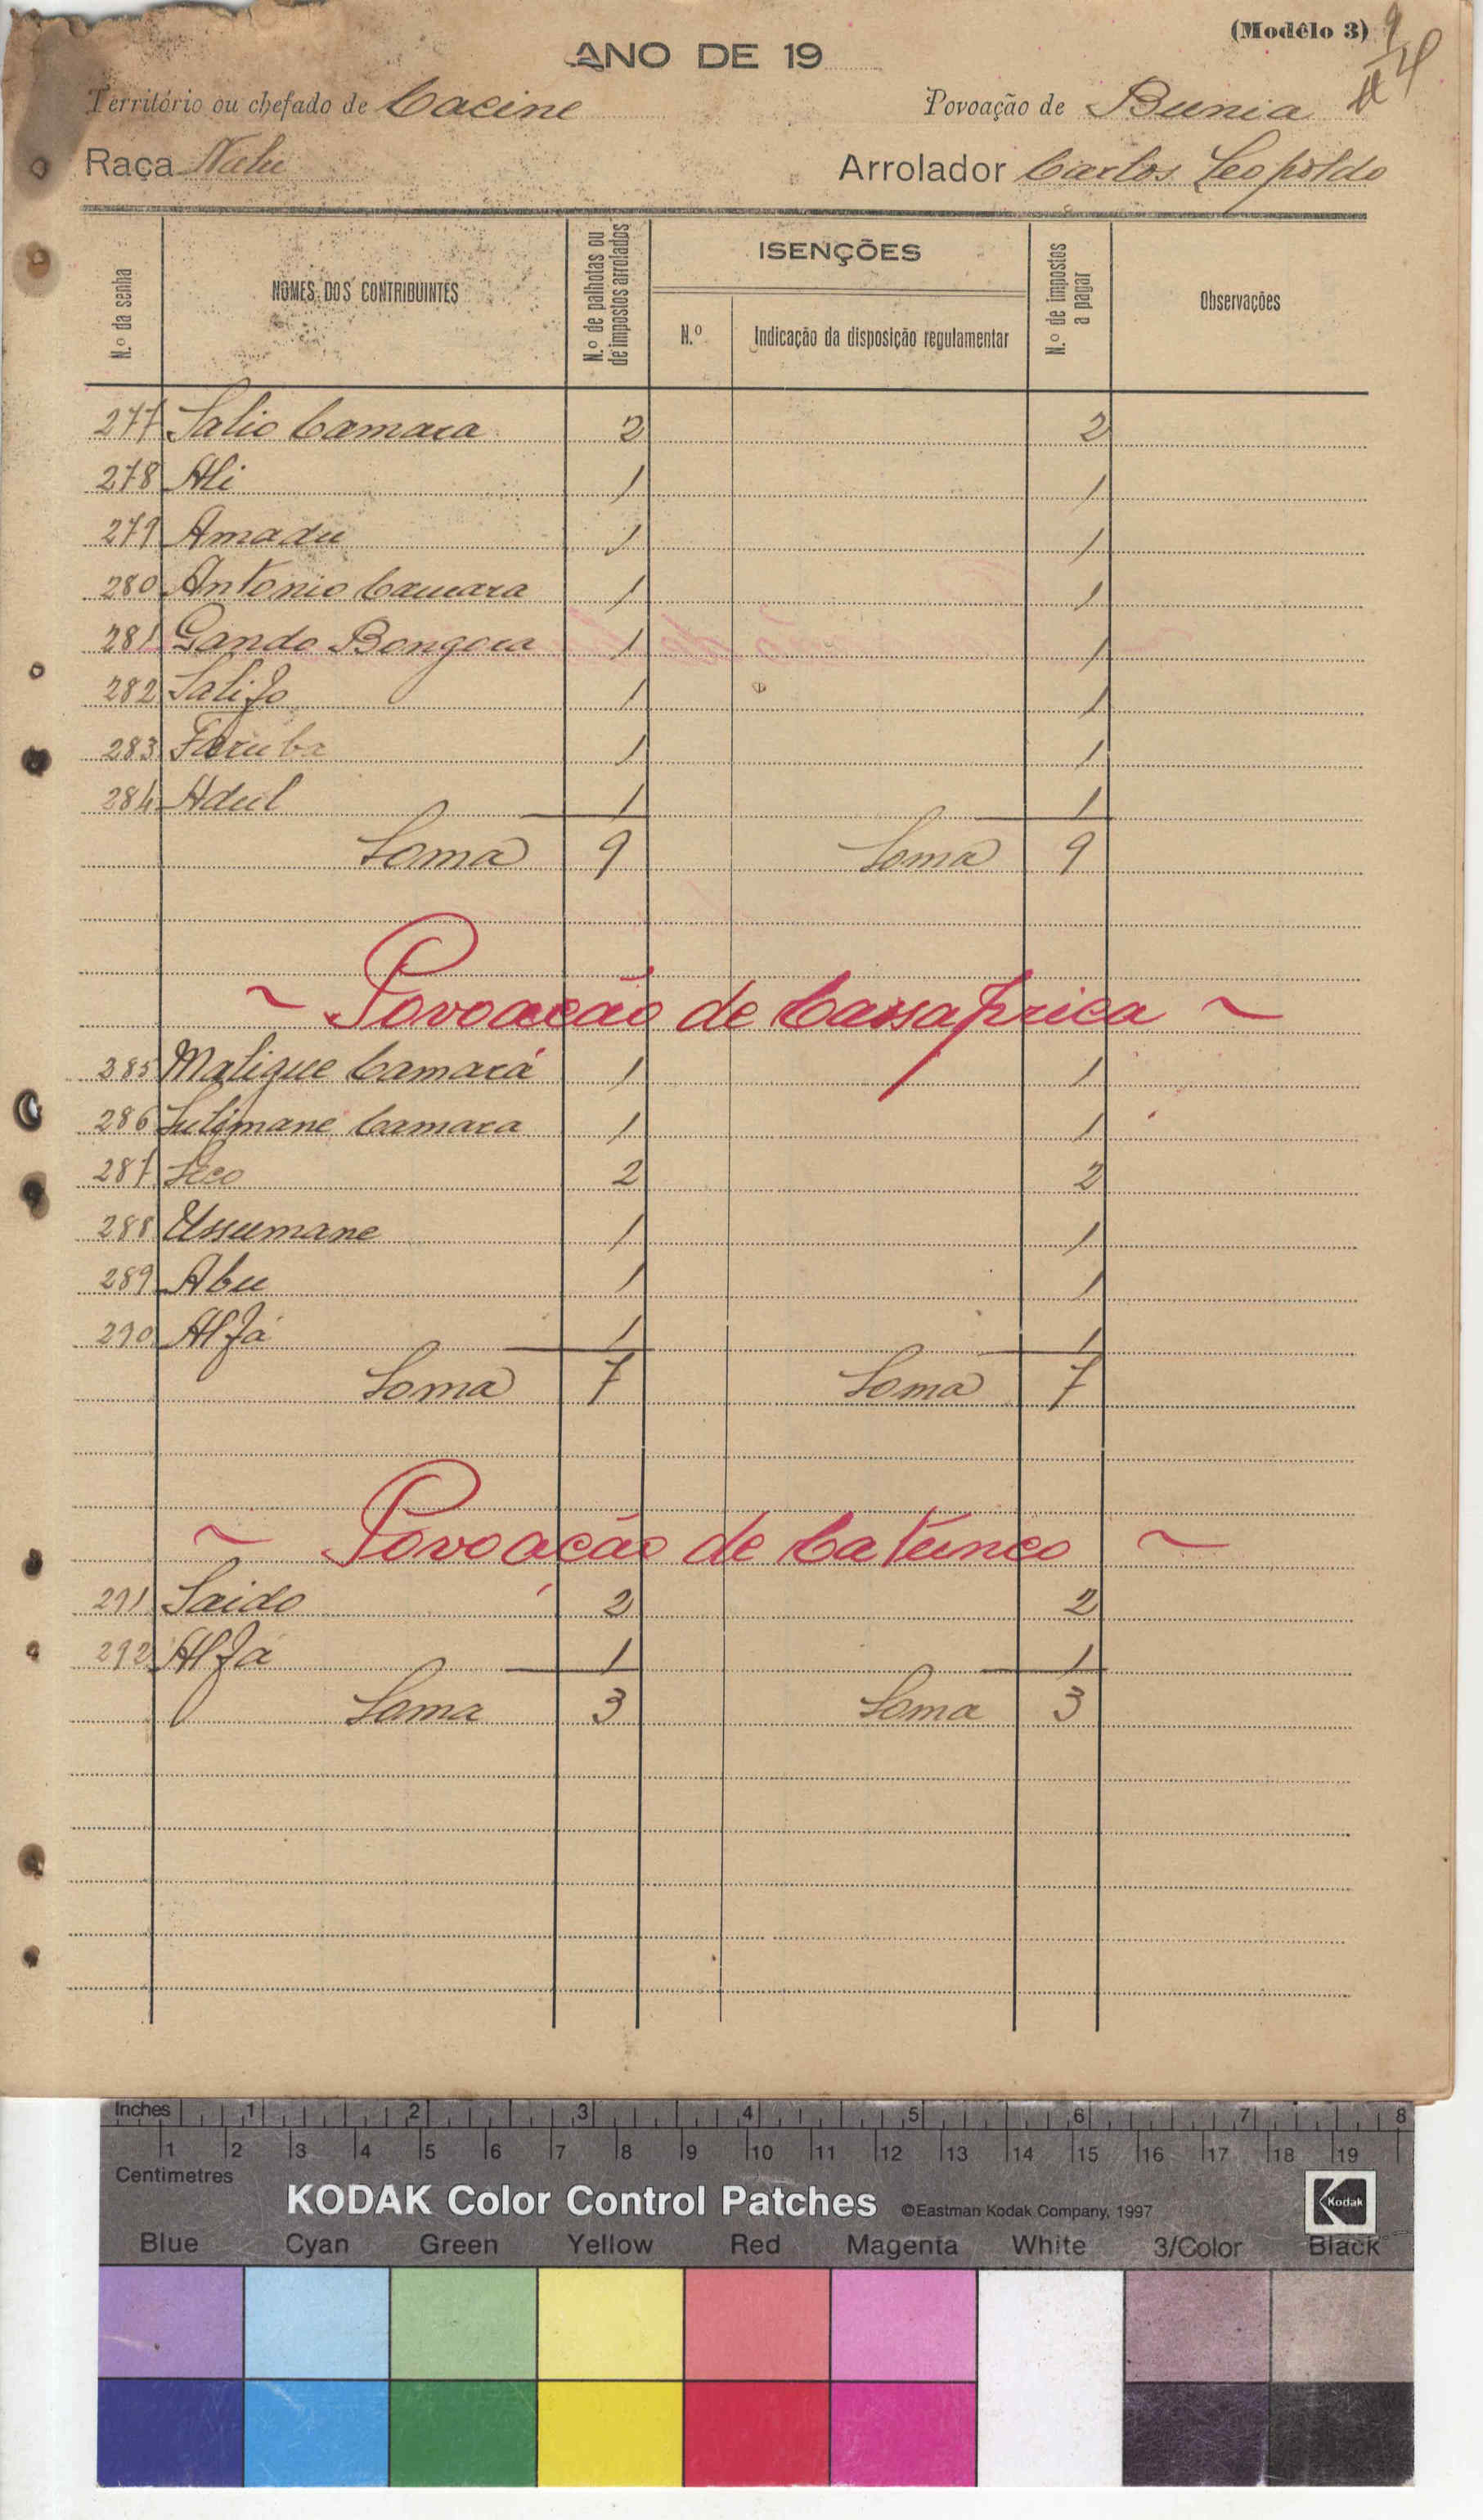 (Modêlo 3)
ANO DE 19
Território ou chefado de Cacine Povoação de Bunia
Raça Nalu Arrolador Carlos Leopoldo
N.º da senha
NOMES DOS CONTRIBUINTES
N.º de palhotas ou de impostos arrolados
ISENÇÕES
N.º
Indicação da disposição regulamentar
N.º de impostos a pagar
Observações
277 Salio Camara 2 2
278 Ali 1 1
279 Amadu 1 1
280 Antonio Camara 1 1
281 Gando Bongora 1 1
282 Salifo 1 1
283 Faruba 1 1
284 Adul 1 1
Soma 9 Soma 9
~ Povoacão de Cassaprica ~
285 Malique Camará 1 1
286 Sulimane Camara 1 1
287 Seco 2 2
288 Ussumane 1 1
289 Abu 1 1
290 Alfá 1 1
Soma 7 Soma 7
~ Povoacão de Catunco ~
291 Saido 2 2
292 Alfá 1 1
Soma 3 Soma 3
Inches 1 2 3 4 5 6 7 8
1 2 3 4 5 6 7 8 9 10 11 12 13 14 15 16 17 18 19
Centimetres
KODAK Color Control Patches ©Eastman Kodak Company, 1997 Kodak
Blue Cyan Green Yellow Red Magenta White 3/Color Black